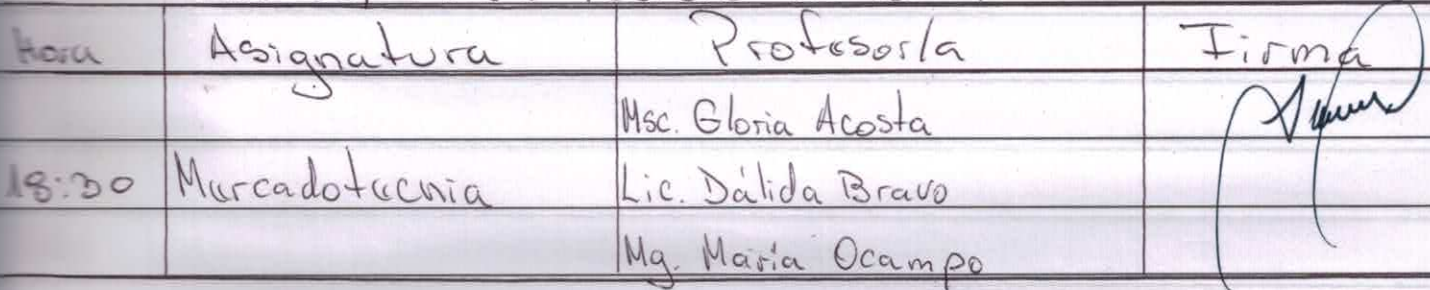 Hora Asignatura Profesor/a Firma
Msc. Gloria Acosta
18:30 Mercadotecnia Lic. Dálida Bravo
Mg. María Ocampo